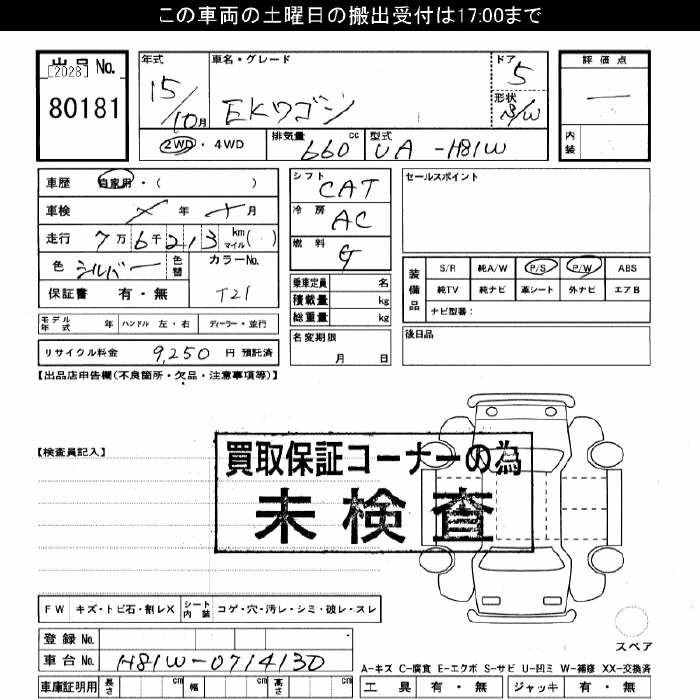 この車両の土曜日の搬出受付は17:00まで
出品No.
[2028]
80181
年式
15/10月
車名・グレード
EKワゴン
ドア
5
形状
S/W
評価点
内装
2WD・4WD
排気量
660cc
型式
UA-H81W
車歴 自家用・( )
車検 年 月
走行 7万6千213 km マイル( )
色 シルバー 色替
カラーNo.
T21
保証書 有・無
シフト
CAT
冷房
AC
燃料
G
乗車定員 名
積載量 kg
総重量 kg
名変期限
月 日
セールスポイント
装備品
S/R 純A/W P/S P/W ABS
純TV 純ナビ 革シート 外ナビ エアB
ナビ型番:
後日品
モデル年式 年 ハンドル 左・右 ディーラー・並行
リサイクル料金 9,250 円 預託済
【出品店申告欄(不良箇所・欠品・注意事項等)】
【検査員記入】
買取保証コーナーの為
未検査
FW キズ・トビ石・割レX シート内装 コゲ・穴・汚レ・シミ・破レ・スレ
スペア
登録No.
車台No. H81W-0714130
車庫証明用 長さ cm 幅 cm 高さ cm
A-キズ C-腐食 E-エクボ S-サビ U-凹ミ W-補修 XX-交換済
工具 有・無 ジャッキ 有・無